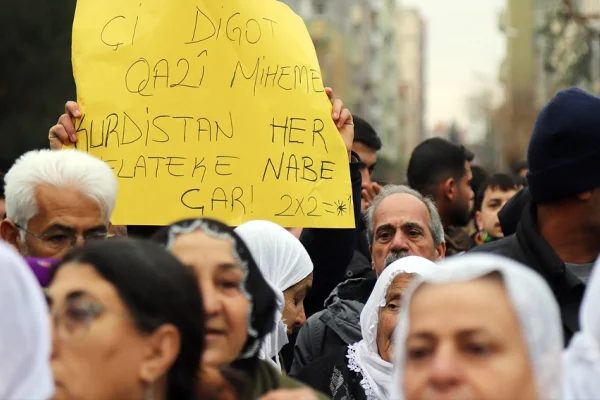 ÇI DIGOT
QAZÎ MIHEME
KURDISTAN HER
ELATEKE NABE
ÇAR! 2X2=*